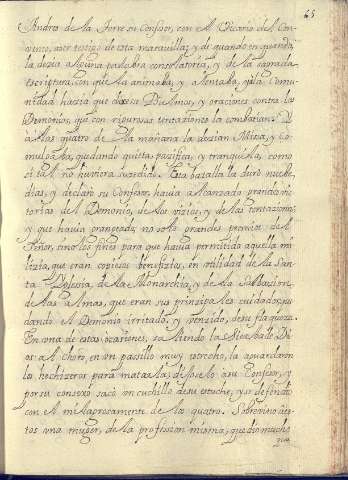 65
Andres de la Torre su Confesor, con el Vicario del Con
vento, por testigo de esta maravilla, y de quando en quando
la decia alguna palabra consolatoria, y de la sagrada
escriptura, con que la animaba, y alentaba, y la Comu
nidad hacia que Psalmos, y oraciones contra los
Demonios, que con rigurosas tentaciones la combatian. Y
a las quatro de la mañana la decian Missa, y Co
mulgaba, quedando quieta, pasifica, y tranquila, como
si tal no huviera susedido. Esta batalla la duró nueve
dias, y declaró su Confesor, havia alcanzado grandes vic
torias del Demonio, de los vicios, y de las tentasiones
y que havia grangeado, no solo grandes premios del
Señor, sino los fines para que havia permitido aquella mi
lizia, que eran copiosos benefisios, en utilidad de la San
ta Yglesia, de la Monarchia, y de la Salbasion
de las almas, que eran sus principales cuidados, que
dando el Demonio irritado, y vensido, de su flaqueza.
En una de estas ocasiones, saliendo la Sierba de Di
os al Choro, en un passillo muy estrecho, la aguardaron
los hechizeros para matarla, dixoselo a su Confesor, y
por su consexo sacó un cuchillo de su estuche, y se defendio
con el milagrosamente de los quatro. Sobrevino a es
tos una muger, de la profession misma, que dio mucho
que